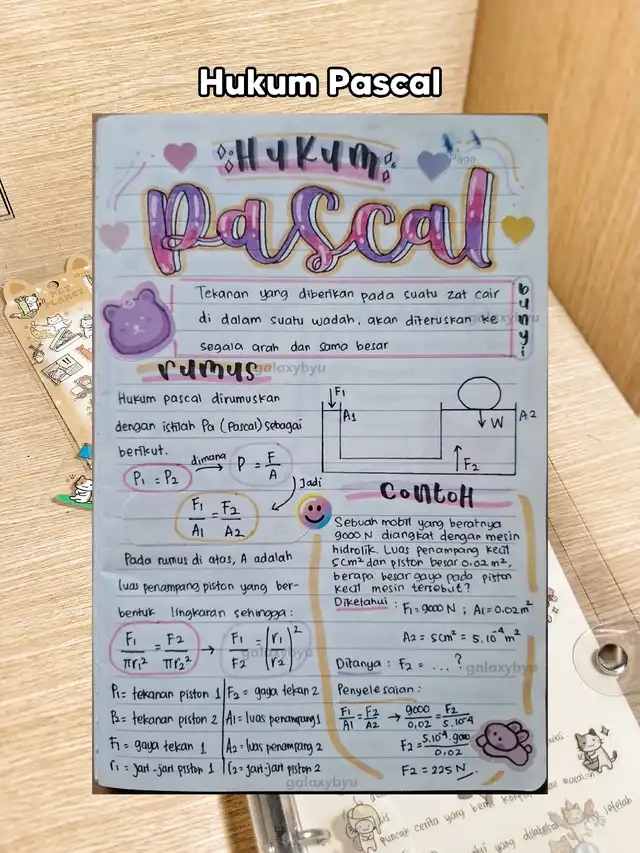 Hukum Pascal
Page
Hukum
pascal
Tekanan yang diberikan pada suatu zat cair
di dalam suatu wadah, akan diteruskan ke
segala arah dan sama besar
bunyi
galaxybyu
rumus
galaxybyu
Hukum pascal dirumuskan
dengan istilah Pa (Pascal) sebagai
berikut.
P₁ = P₂ dimana → P = F/A
Jadi
F₁/A₁ = F₂/A₂
Pada rumus di atas, A adalah
luas penampang piston yang ber-
bentuk lingkaran sehingga:
F₁/πr₁² = F₂/πr₂² → F₁/F₂ = (r₁/r₂)²
galaxybyu
P₁ = tekanan piston 1
P₂ = tekanan piston 2
F₁ = gaya tekan 1
r₁ = jari-jari piston 1
F₂ = gaya tekan 2
A₁ = luas penampang 1
A₂ = luas penampang 2
r₂ = jari-jari piston 2
galaxybyu
F₁
A₁
W
A₂
F₂
Contoh
Sebuah mobil yang beratnya
9000 N diangkat dengan mesin
hidrolik. Luas penampang kecil
5cm² dan piston besar 0.02 m²,
berapa besar gaya pada piston
kecil mesin tersebut?
Diketahui : F₁ = 9000 N ; A₁ = 0.02 m²
A₂ = 5cm² = 5.10⁻⁴ m²
Ditanya : F₂ = ... ?
galaxybyu
Penyelesaian :
F₁/A₁ = F₂/A₂ → 9000/0,02 = F₂/5.10⁻⁴
F₂ = 5.10⁻⁴.9000/0.02
F₂ = 225 N
puncak cerita yang berii
masalah
setelah